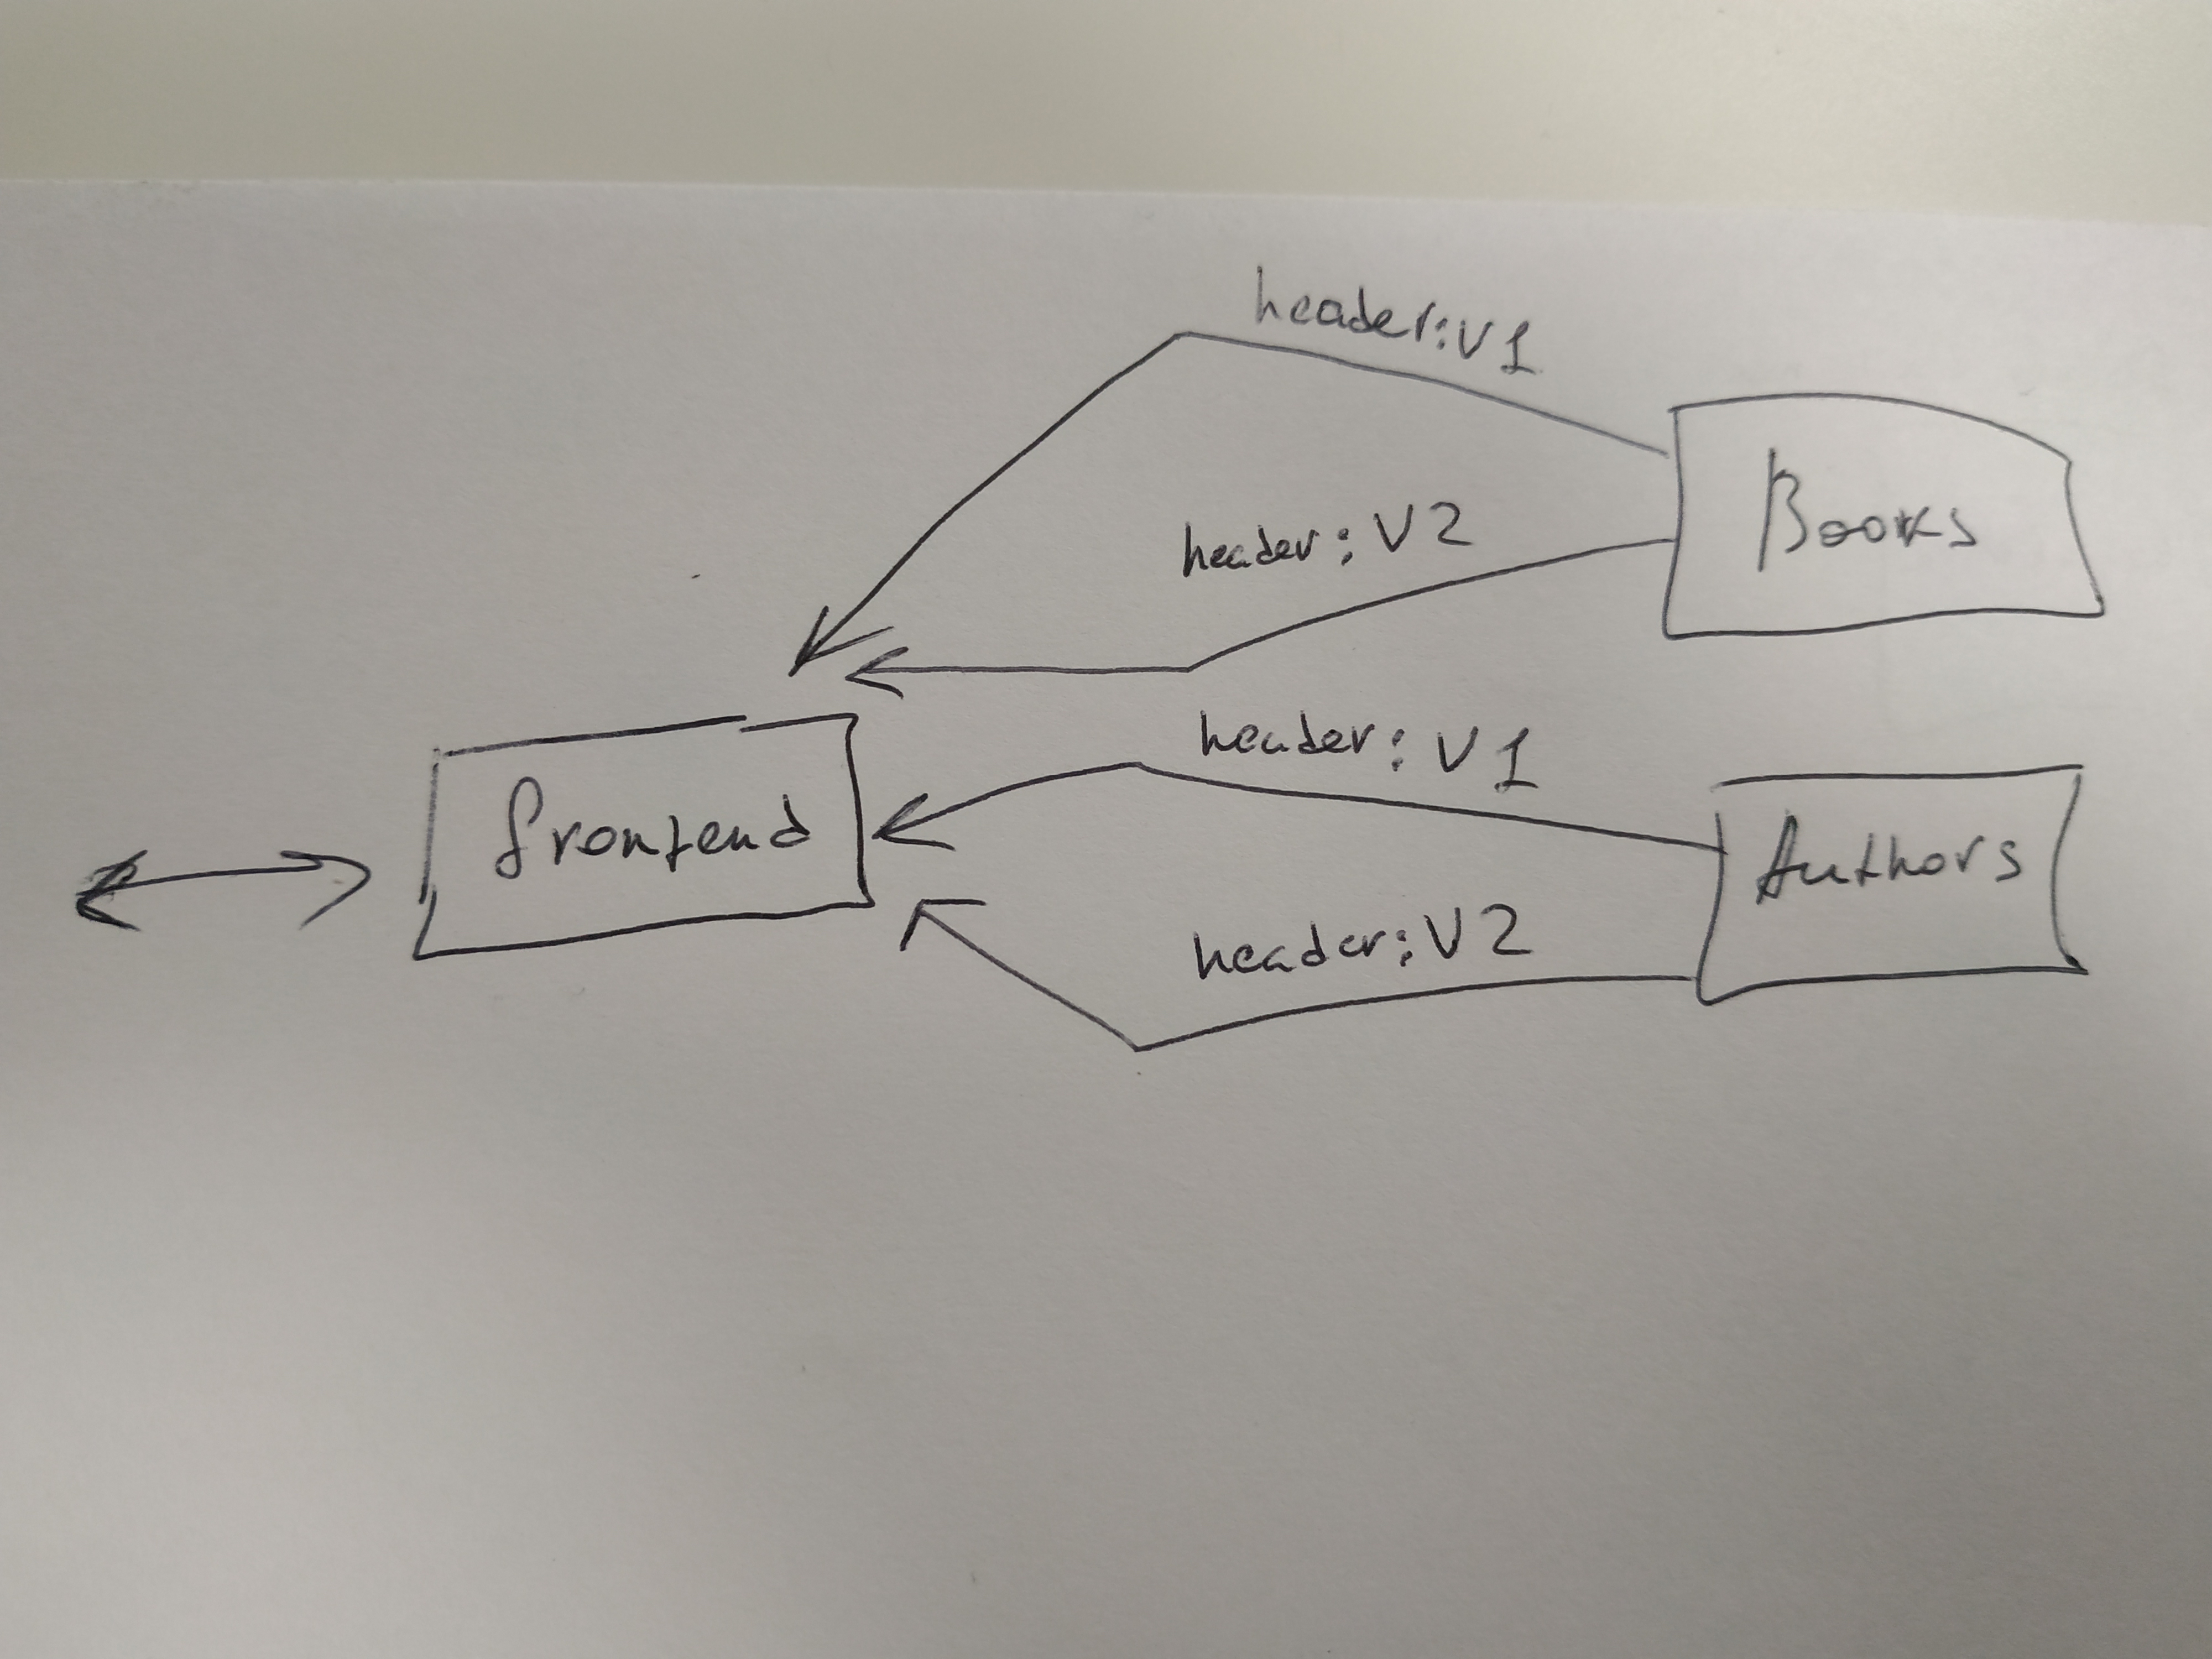 header:V1
Books
header:V2
header:V1
frontend
Authors
header:V2